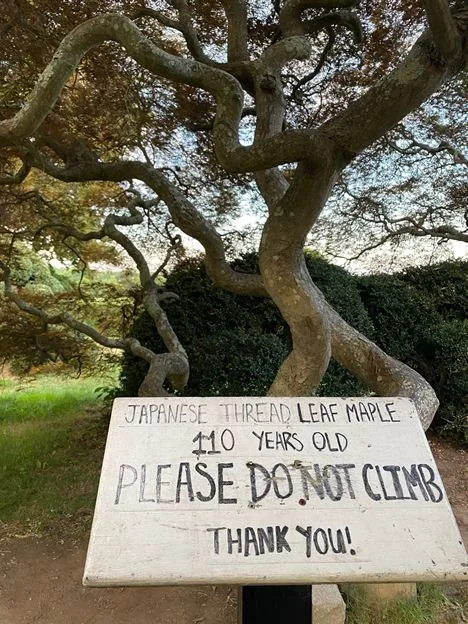 JAPANESE THREAD LEAF MAPLE
110 YEARS OLD
PLEASE DO NOT CLIMB
THANK YOU!